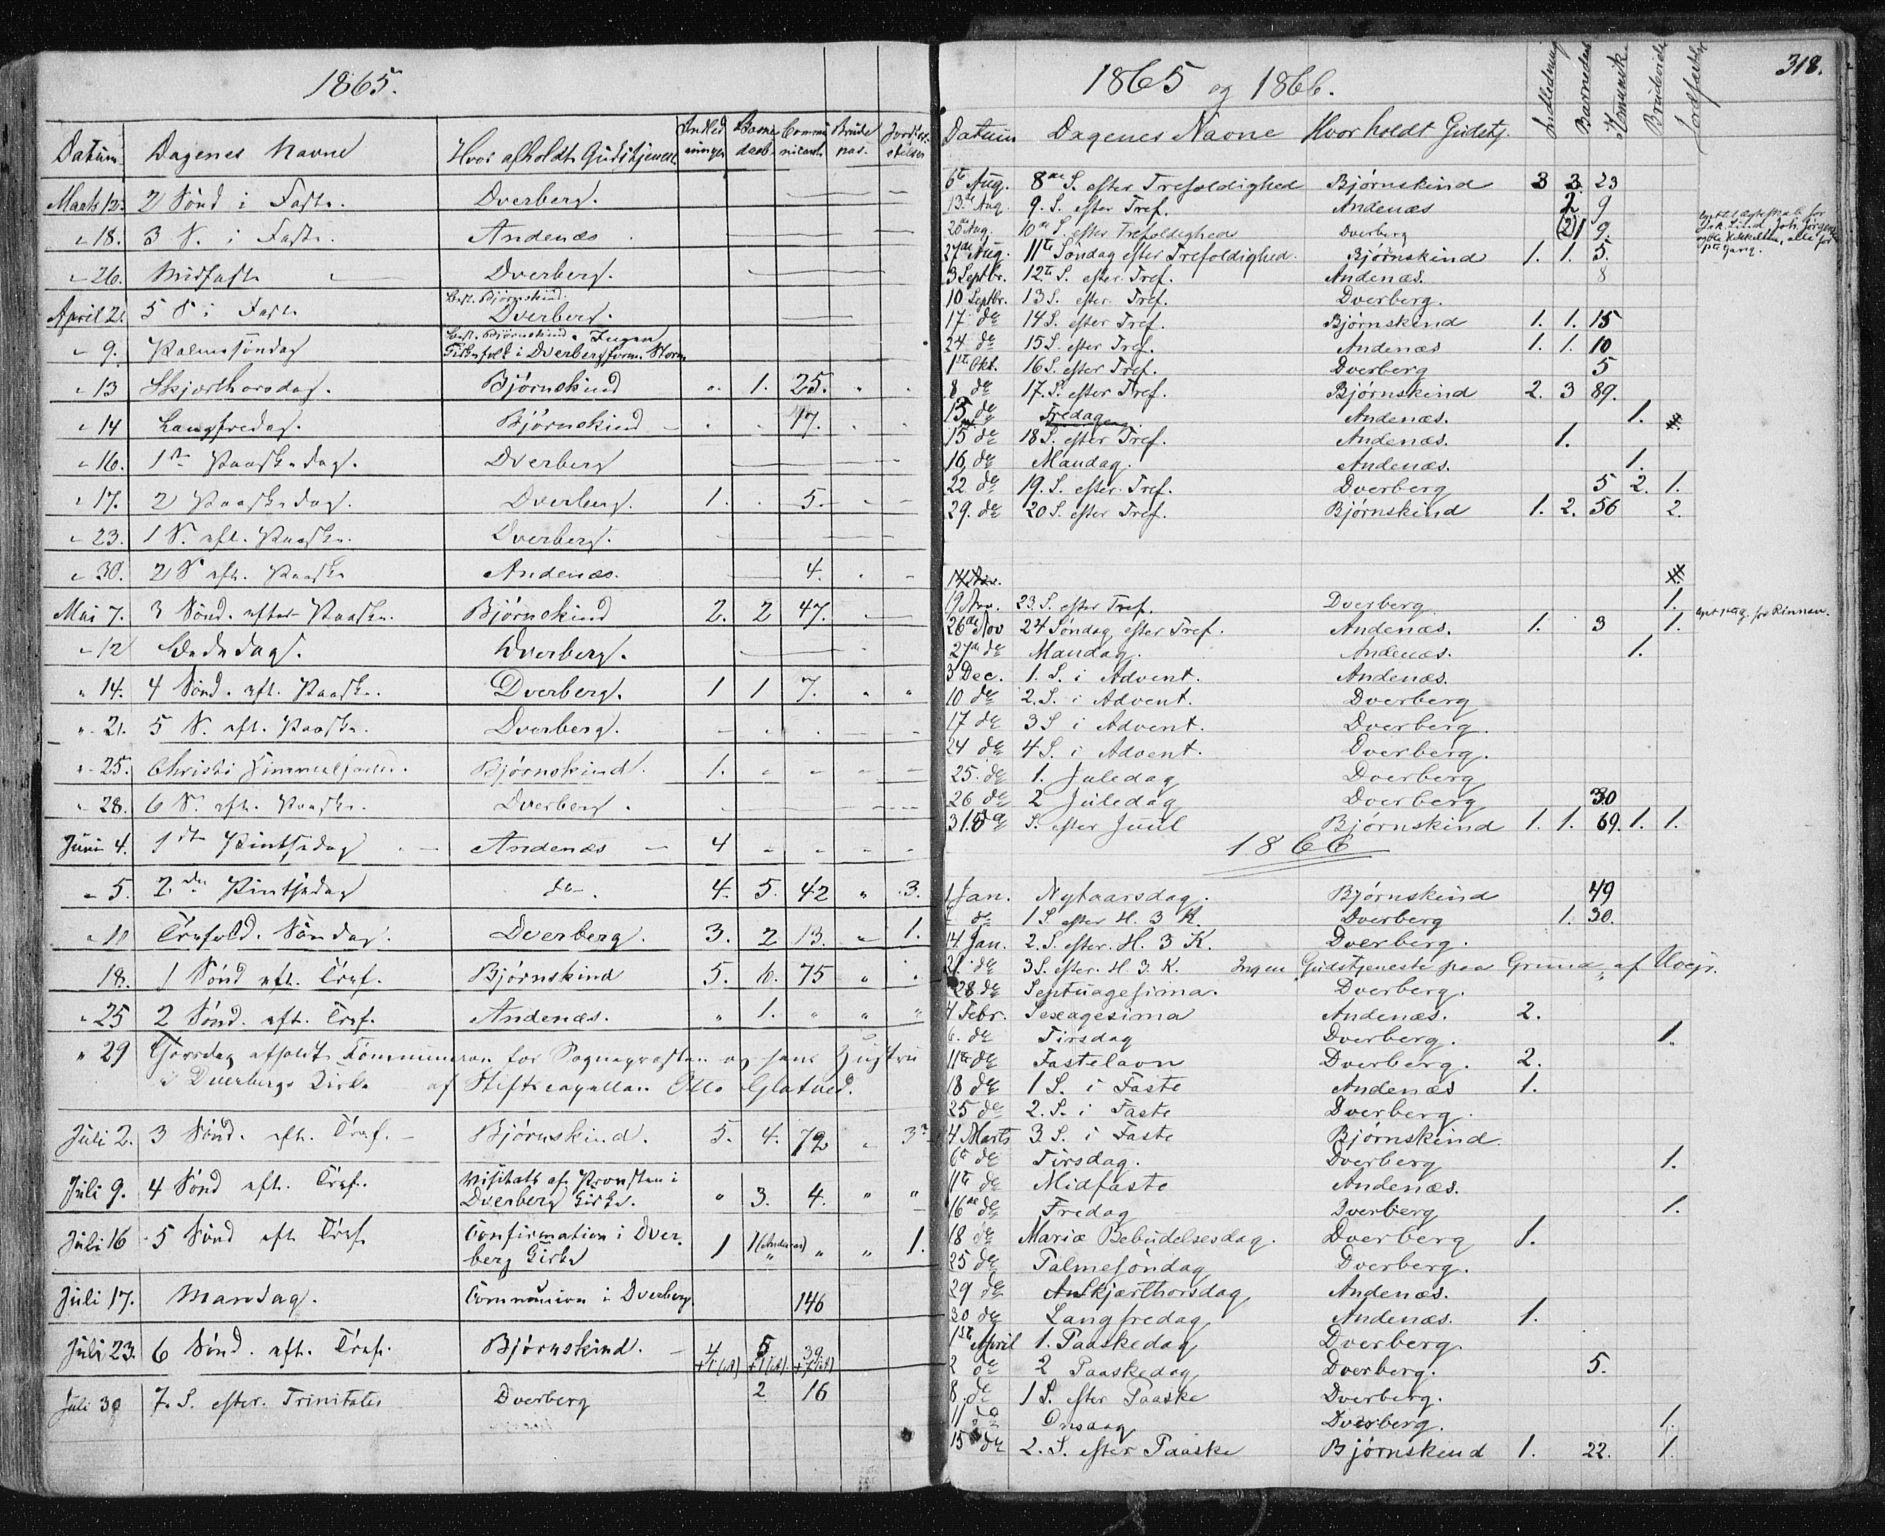 1865.
Datum Dagenes Navne Hvor afholdt Gudstjeneste Indledninger Barnedaab Communicanter Brude
Marts 12. 2 Sønd i Faste. Dverberg.
" 18. 3 S. i Faste. Andenæs
" 26. Midfaste Dverberg.
April 2. 5 S i Faste Best. Bjørnskind. Dverberg.
" 9. Palmesøndag Best. Bjørnskind. Ingen
Kirkefolk i Dverberg form. Storm
" 13 Skjærthorsdag. Bjørnskind " 1. 25. " "
" 14 Langfredag. Bjørnskind " " 47. " "
" 16. 1ste Paaskedag. Dverberg
" 17. 2 Paaskedag. Dverberg. 1. " 5.
" 23. 1 S. eft. Paaske. Dverberg.
" 30. 2 S eft. Paaske Andenæs. 4.
Mai 7. 3 Sønd. efter Paaske. Bjørnskind 2. 2 47.
" 12 Bededag. Dverberg.
" 14. 4 Sønd. eft. Paaske. Dverberg. 1 1 7. " "
" 21. 5 S. eft. Paaske. Dverberg.
" 25. Christi Himmelfarts. Bjørnskind. 1. " " " "
" 28. 6 S. eft. Paaske. Dverberg.
Juni 4. 1ste Pintsedag Andenæs 4
" 5. 2den Pintsedag do 4. 5. 42 " 3.
" 11 Trefold. Søndag. Dverberg. 3. 2 13. " 1.
" 18. 1 Sønd eft. Tref. Bjørnskind 5. 6. 75 " "
" 25 2 Sønd. eft. Tref. Andenæs. " 1. " " "
" 29 Torsdag afholdt Kommunion for Sognepræsten og hans Hustru
i Dverbergs Kirke af Stiftscapellan Otto Glatved.
Juli 2. 3 Sønd. eft. Tref. Bjørnskind. 5. 4. 72 " 3
Juli 9. 4 Sønd eft. Tref. Visitats af Provsten i
Dverberg Kirke. " 3. 4. " "
Juli 16 5 Sønd eft Tref. Confirmation i Dverberg Kirke 1 1 (Andenæs) " " 1.
Juli 17. Mandag. Communion i Dverberg 146
Juli 23. 6 Sønd. eft. Tref. Bjørnskind. 4 +1(A) 5 +1(A). 39
Juli 30 7. S. efter. Trinitatis Dverberg 2 16
1865 og 1866. 318.
Datum Dagenes Navne Hvor holdt Gudstj. Indledning Barnedaab Komunik. Jordfæstelse
6te Aug. 8de S. efter Trefoldighed Bjørnskind 3 3. 23
13de Aug. 9. S. efter Tref. Andenæs 2 9
20de Aug. 10de S. efter Trefoldighed Dverberg (2)1 9.
27de Aug. 11te Søndag efter Trefoldighed. Bjørnskind 1. 1. 5.
3 Septbr. 12te S. efter Tref. Andenæs. 8
10 Septbr. 13 S. efter Tref. Dverberg.
17 de 14 S. efter Tref. Bjørnskind 1. 1. 15
24 de 15 S. efter Tref. Andenæs 1. 1. 10
1ste Okt. 16 S. efter Tref. Dverberg 5
8 de 17. S. efter Tref. Bjørnskind 2. 3 89.
13 de Fredag Andenæs. 1.
15 de 18 S. efter Tref. Andenæs. 1.
16 de Mandag. Andenæs. 1.
22 de 19. S. efter. Tref. Dverberg 5 2. 1.
29. de 20 S. efter Tref. Bjørnskind 1. 2. 56 2.
19 Nov. 23. S. efter Tref. Dverberg 1.
26de Nov 24 Søndag efter Tref. Andenæs. 1. 3 1.
27de de Mandag. Andenæs. 1.
3 Dec. 1. S. i Advent. Andenæs.
10 de 2. S. i Advent. Dverberg
17 de 3 S i Advent. Dverberg.
24 de 4 S. i Advent. Dverberg.
25. de 1. Juledag Dverberg
26 de 2 Juledag Dverberg 30
31. de S. efter Juul Bjørnskind 1. 1. 69. 1. 1.
1866
1 Jan. Nytaarsdag. Bjørnskind 49
7 de 1 S. efter H. 3 K. Dverberg 1. 30.
14 Jan. 2. S. efter. H. 3 K. Dverberg.
21. de 3 S. efter. H. 3. K. Ingen Gudstjeneste paa Grund af Uvejr.
28 de Septuagesima. Dverberg.
4 Febr. Sexagesima Andenæs. 2.
6. de Tirsdag Dverberg. 1.
11te de Fastelavn Dverberg. 2.
18 de 1 S. i Faste Andenæs 1.
25 de 2. S. i Faste Dverberg.
4 Marts 3 S. i Faste Bjørnskind
6te de Tirsdag. Dverberg 1.
11te de Midfaste Andenæs.
16de de Fredag Dverberg 1.
18 de Mariæ Bebudelsesdag. Dverberg 1.
25 de Palmesøndag Dverberg.
29 de Skjærthorsdag Andenæs.
30 de Langfredag Andenæs. 1.
1ste April 1. Paaskedag Dverberg.
2 de 2 Paaskedag Dverberg. 5.
8. de 1 S. efter Paaske Dverberg.
11 de Onsdag Dverberg. 1.
15 de 2. S. efter Paaske Bjørnskind 1. 22. 1.